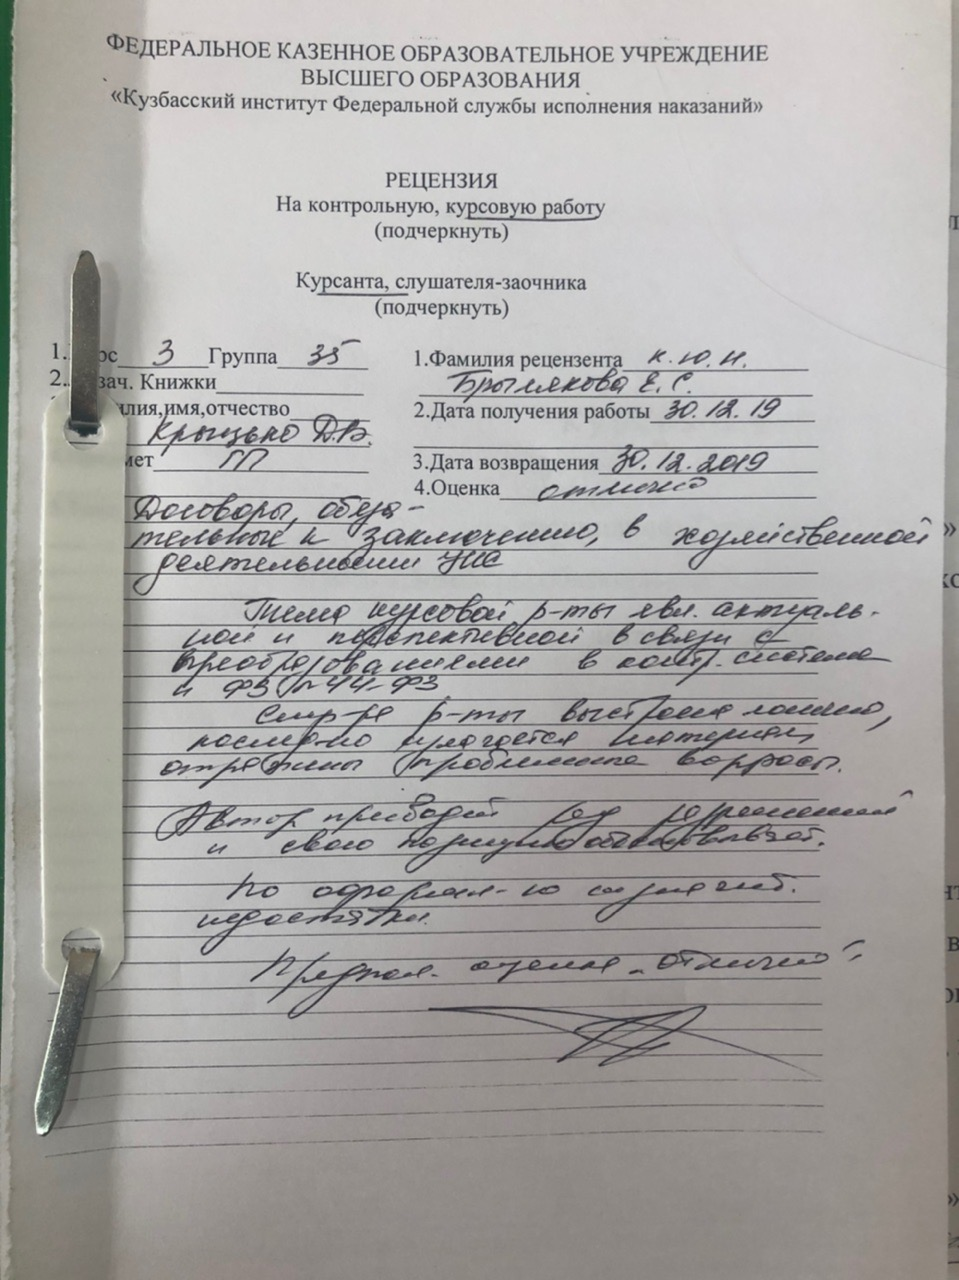 ФЕДЕРАЛЬНОЕ КАЗЕННОЕ ОБРАЗОВАТЕЛЬНОЕ УЧРЕЖДЕНИЕ
ВЫСШЕГО ОБРАЗОВАНИЯ
«Кузбасский институт Федеральной службы исполнения наказаний»
РЕЦЕНЗИЯ
На контрольную, курсовую работу
(подчеркнуть)
Курсанта, слушателя-заочника
(подчеркнуть)
1. 3 Группа 35
2. зач. Книжки
имя,отчество
Д.В.
1.Фамилия рецензента к.ю.н.
Брыллякова Е.С.
2.Дата получения работы 30.12.19
3.Дата возвращения 30.12.2019
4.Оценка отлично
Договоры, обяза-
тельные к заключению, в хозяйственной
деятельности УИС
Тема курсовой р-ты явл. актуаль-
ной и перспективной в связи с
преобразованиями в контр. системе
и ФЗ №44-ФЗ
Стр-ра р-ты выстроена логично,
излагается материал,
отражены проблемные вопросы.
Автор приводит ряд
и свою позицию обосновывает.
По оформл-ю
недостатки.
оценка „отлично".